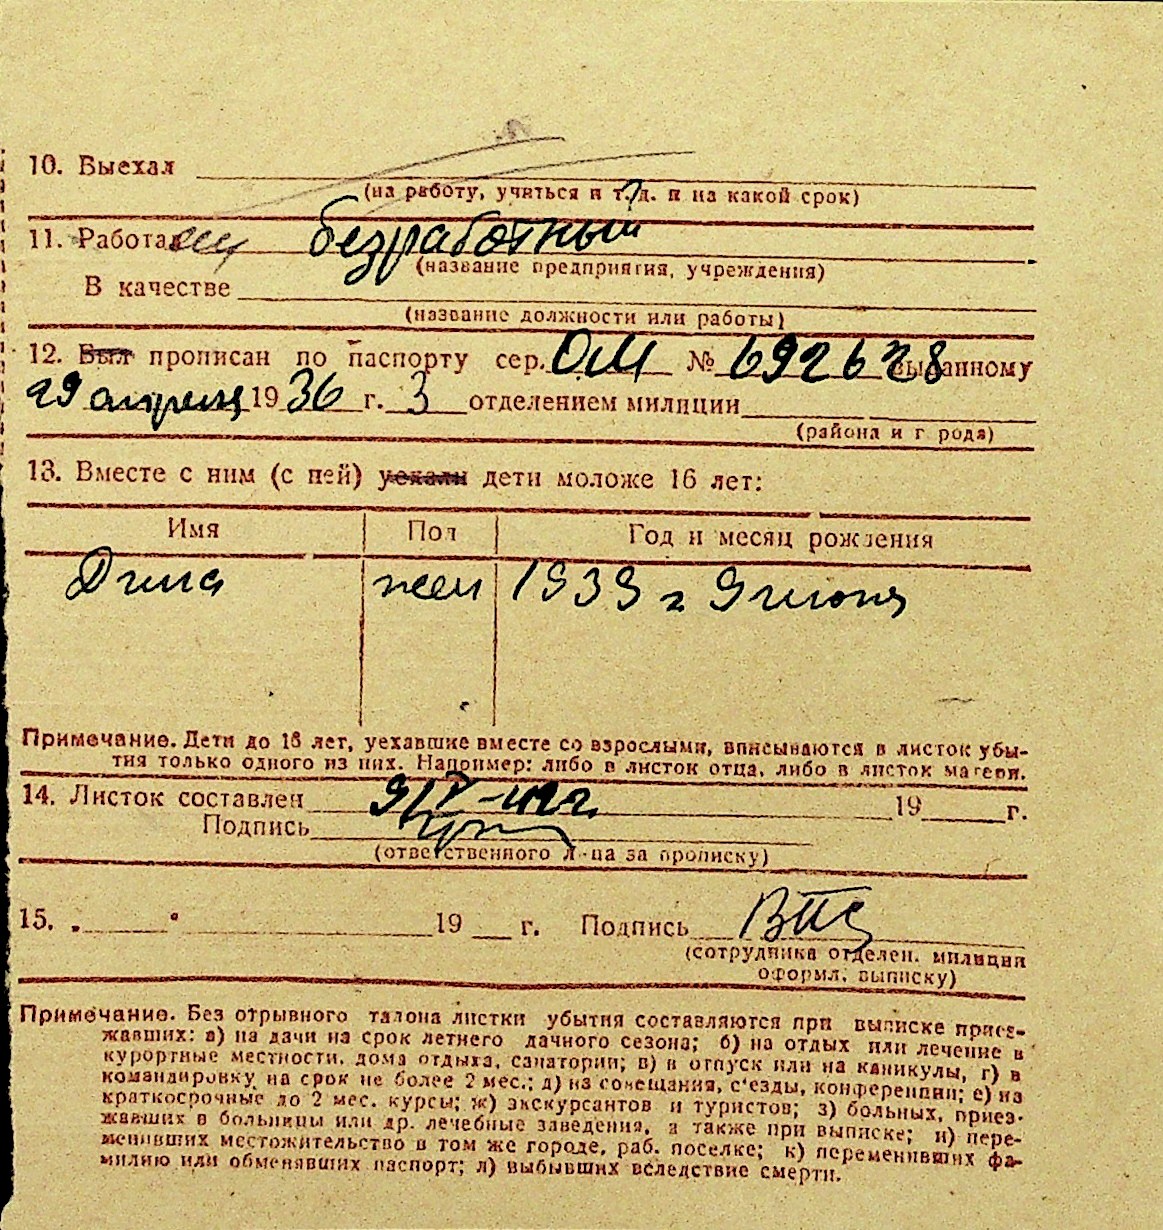 10. Выехал
(на работу, учиться и т. д. и на какой срок)
11. Работа безработный
(название предприятия, учреждения)
В качестве
(название должности или работы)
12. Был прописан по паспорту сер. ОМ № 692628 выданному
29 апреля 1936 г. 3 отделением милиции
(района и г рода)
13. Вместе с ним (с ней) уехали дети моложе 16 лет:
Имя Пол Год и месяц рождения
Дина жен 1939 г 9 июня
Примечание. Дети до 16 лет, уехавшие вместе со взрослыми, вписываются в листок убы-
тия только одного из них. Например: либо в листок отца, либо в листок матери.
14. Листок составлен 9/V-42г. 19 г.
Подпись
(ответственного л-ца за прописку)
15. „ “ 19 г. Подпись
(сотрудника отделен. милиции
оформл. выписку)
Примечание. Без отрывного талона листки убытия составляются при выписке приез-
жавших: а) на дачи на срок летнего дачного сезона; б) на отдых или лечение в
курортные местности, дома отдыха, санатории; в) в отпуск или на каникулы, г) в
командировку на срок не более 2 мес.; д) на совещания, с'езды, конференции; е) на
краткосрочные до 2 мес. курсы; ж) экскурсантов и туристов; з) больных, приез-
жавших в больницы или др. лечебные заведения, а также при выписке; и) пере-
менивших местожительство в том же городе, раб. поселке; к) переменивших фа-
милию или обменявших паспорт; л) выбывших вследствие смерти.